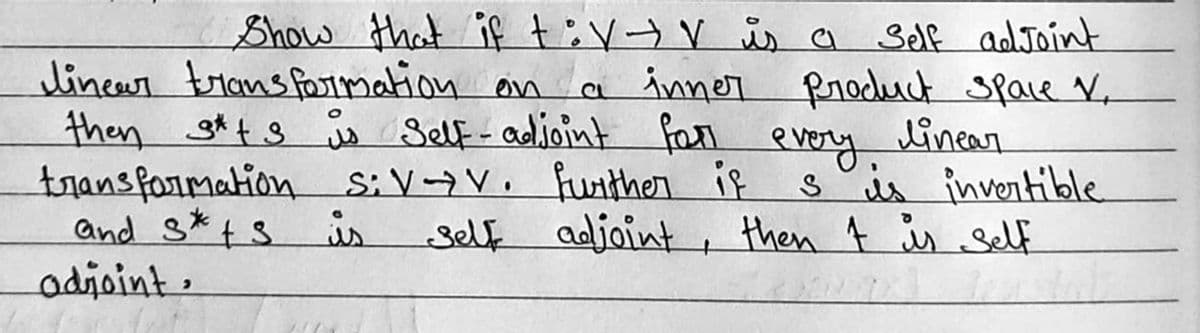 Show that if t : V → V is a self adjoint
linear transformation on a inner product space V,
then s* t s is self-adjoint for every linear
transformation s: V → V. further if s is invertible
and s* t s is self adjoint, then t is self
adjoint.